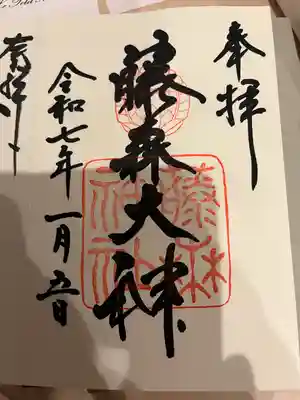 奉拝
藤森大神
藤森
神社
令和七年一月五日
奉拝